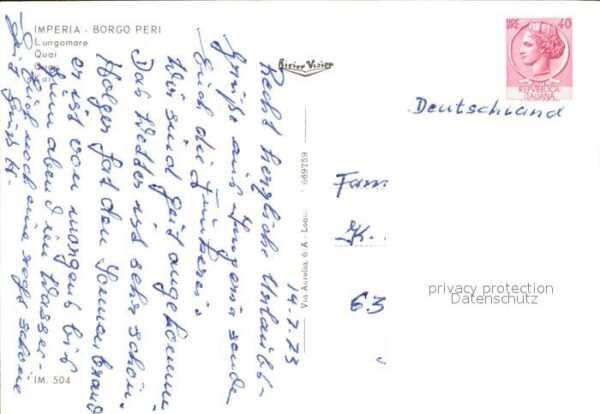 IMPERIA - BORGO PERI
Lungomare
Quai
Quay
Kai
IM. 504
Rivier Vision
Via Aurelia, 6 A - Loano 669759
LIRE 40
REPUBBLICA
ITALIANA
14.7.73
Recht herzliche Urlaubs-
grüße aus Imperia sendet
Euch die
Wir sind gut angekommen
Das Wetter ist sehr schön.
Holger hat den Sonnenbrand
er ist von morgens bis
zum abend im Wasser.
Euch noch eine recht schöne
Zeit
Deutschland
Fam
K.
63
privacy protection
Datenschutz